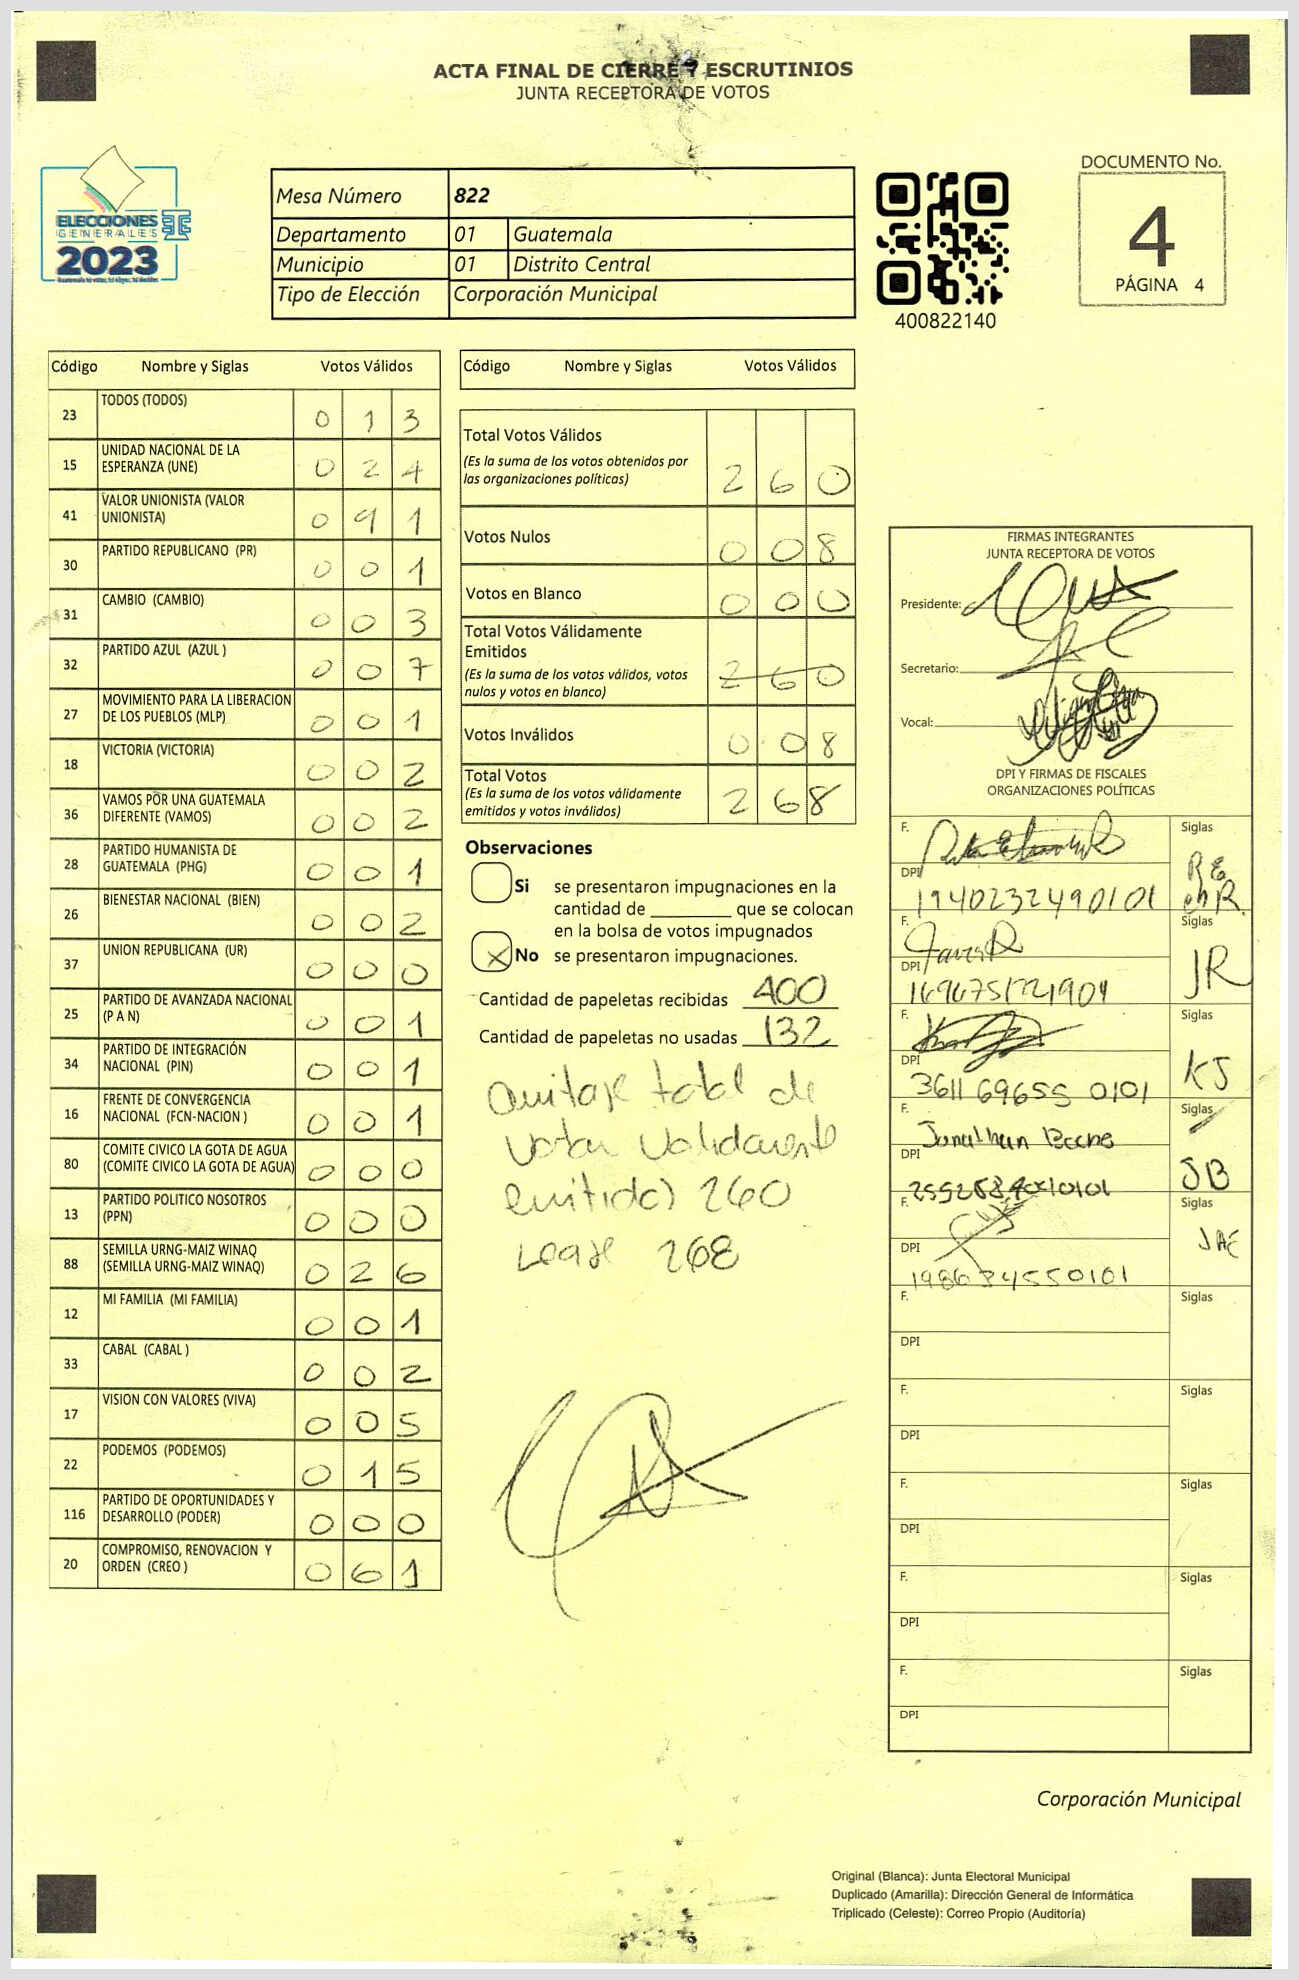 ACTA FINAL DE CIERRE Y ESCRUTINIOS
JUNTA RECEPTORA DE VOTOS
ELECCIONES
GENERALES
2023
Mesa Número 822
Departamento 01 Guatemala
Municipio 01 Distrito Central
Tipo de Elección Corporación Municipal
400822140
DOCUMENTO No.
4
PÁGINA 4
Código Nombre y Siglas Votos Válidos
23 TODOS (TODOS) 0 1 3
15 UNIDAD NACIONAL DE LA
ESPERANZA (UNE) 0 2 4
41 VALOR UNIONISTA (VALOR
UNIONISTA) 0 9 1
30 PARTIDO REPUBLICANO (PR) 0 0 1
31 CAMBIO (CAMBIO) 0 0 3
32 PARTIDO AZUL (AZUL ) 0 0 7
27 MOVIMIENTO PARA LA LIBERACION
DE LOS PUEBLOS (MLP) 0 0 1
18 VICTORIA (VICTORIA) 0 0 2
36 VAMOS POR UNA GUATEMALA
DIFERENTE (VAMOS) 0 0 2
28 PARTIDO HUMANISTA DE
GUATEMALA (PHG) 0 0 1
26 BIENESTAR NACIONAL (BIEN) 0 0 2
37 UNION REPUBLICANA (UR) 0 0 0
25 PARTIDO DE AVANZADA NACIONAL
(P A N) 0 0 1
34 PARTIDO DE INTEGRACIÓN
NACIONAL (PIN) 0 0 1
16 FRENTE DE CONVERGENCIA
NACIONAL (FCN-NACION ) 0 0 1
80 COMITE CIVICO LA GOTA DE AGUA
(COMITE CIVICO LA GOTA DE AGUA) 0 0 0
13 PARTIDO POLITICO NOSOTROS
(PPN) 0 0 0
88 SEMILLA URNG-MAIZ WINAQ
(SEMILLA URNG-MAIZ WINAQ) 0 2 6
12 MI FAMILIA (MI FAMILIA) 0 0 1
33 CABAL (CABAL ) 0 0 2
17 VISION CON VALORES (VIVA) 0 0 5
22 PODEMOS (PODEMOS) 0 1 5
116 PARTIDO DE OPORTUNIDADES Y
DESARROLLO (PODER) 0 0 0
20 COMPROMISO, RENOVACION Y
ORDEN (CREO ) 0 6 1
Código Nombre y Siglas Votos Válidos
Total Votos Válidos
(Es la suma de los votos obtenidos por
las organizaciones políticas) 2 6 0
Votos Nulos 0 0 8
Votos en Blanco 0 0 0
Total Votos Válidamente
Emitidos
(Es la suma de los votos válidos, votos
nulos y votos en blanco) 2 6 0
Votos Inválidos 0 0 8
Total Votos
(Es la suma de los votos válidamente
emitidos y votos inválidos) 2 6 8
Observaciones
Si se presentaron impugnaciones en la
cantidad de ________ que se colocan
en la bolsa de votos impugnados
X No se presentaron impugnaciones.
Cantidad de papeletas recibidas 400
Cantidad de papeletas no usadas 132
total de
Validamente
emitidos 260
Lease 268
FIRMAS INTEGRANTES
JUNTA RECEPTORA DE VOTOS
Presidente:
Secretario:
Vocal:
DPI Y FIRMAS DE FISCALES
ORGANIZACIONES POLÍTICAS
F. Siglas
DPI
1940232490101
F. Siglas
DPI JR
F. Siglas
DPI KJ
3611 69655 0101
F. Jonathan Siglas
DPI JB
F. Siglas
DPI JAE
F. Siglas
DPI
F. Siglas
DPI
F. Siglas
DPI
F. Siglas
DPI
F. Siglas
DPI
Corporación Municipal
Original (Blanca): Junta Electoral Municipal
Duplicado (Amarilla): Dirección General de Informática
Triplicado (Celeste): Correo Propio (Auditoría)